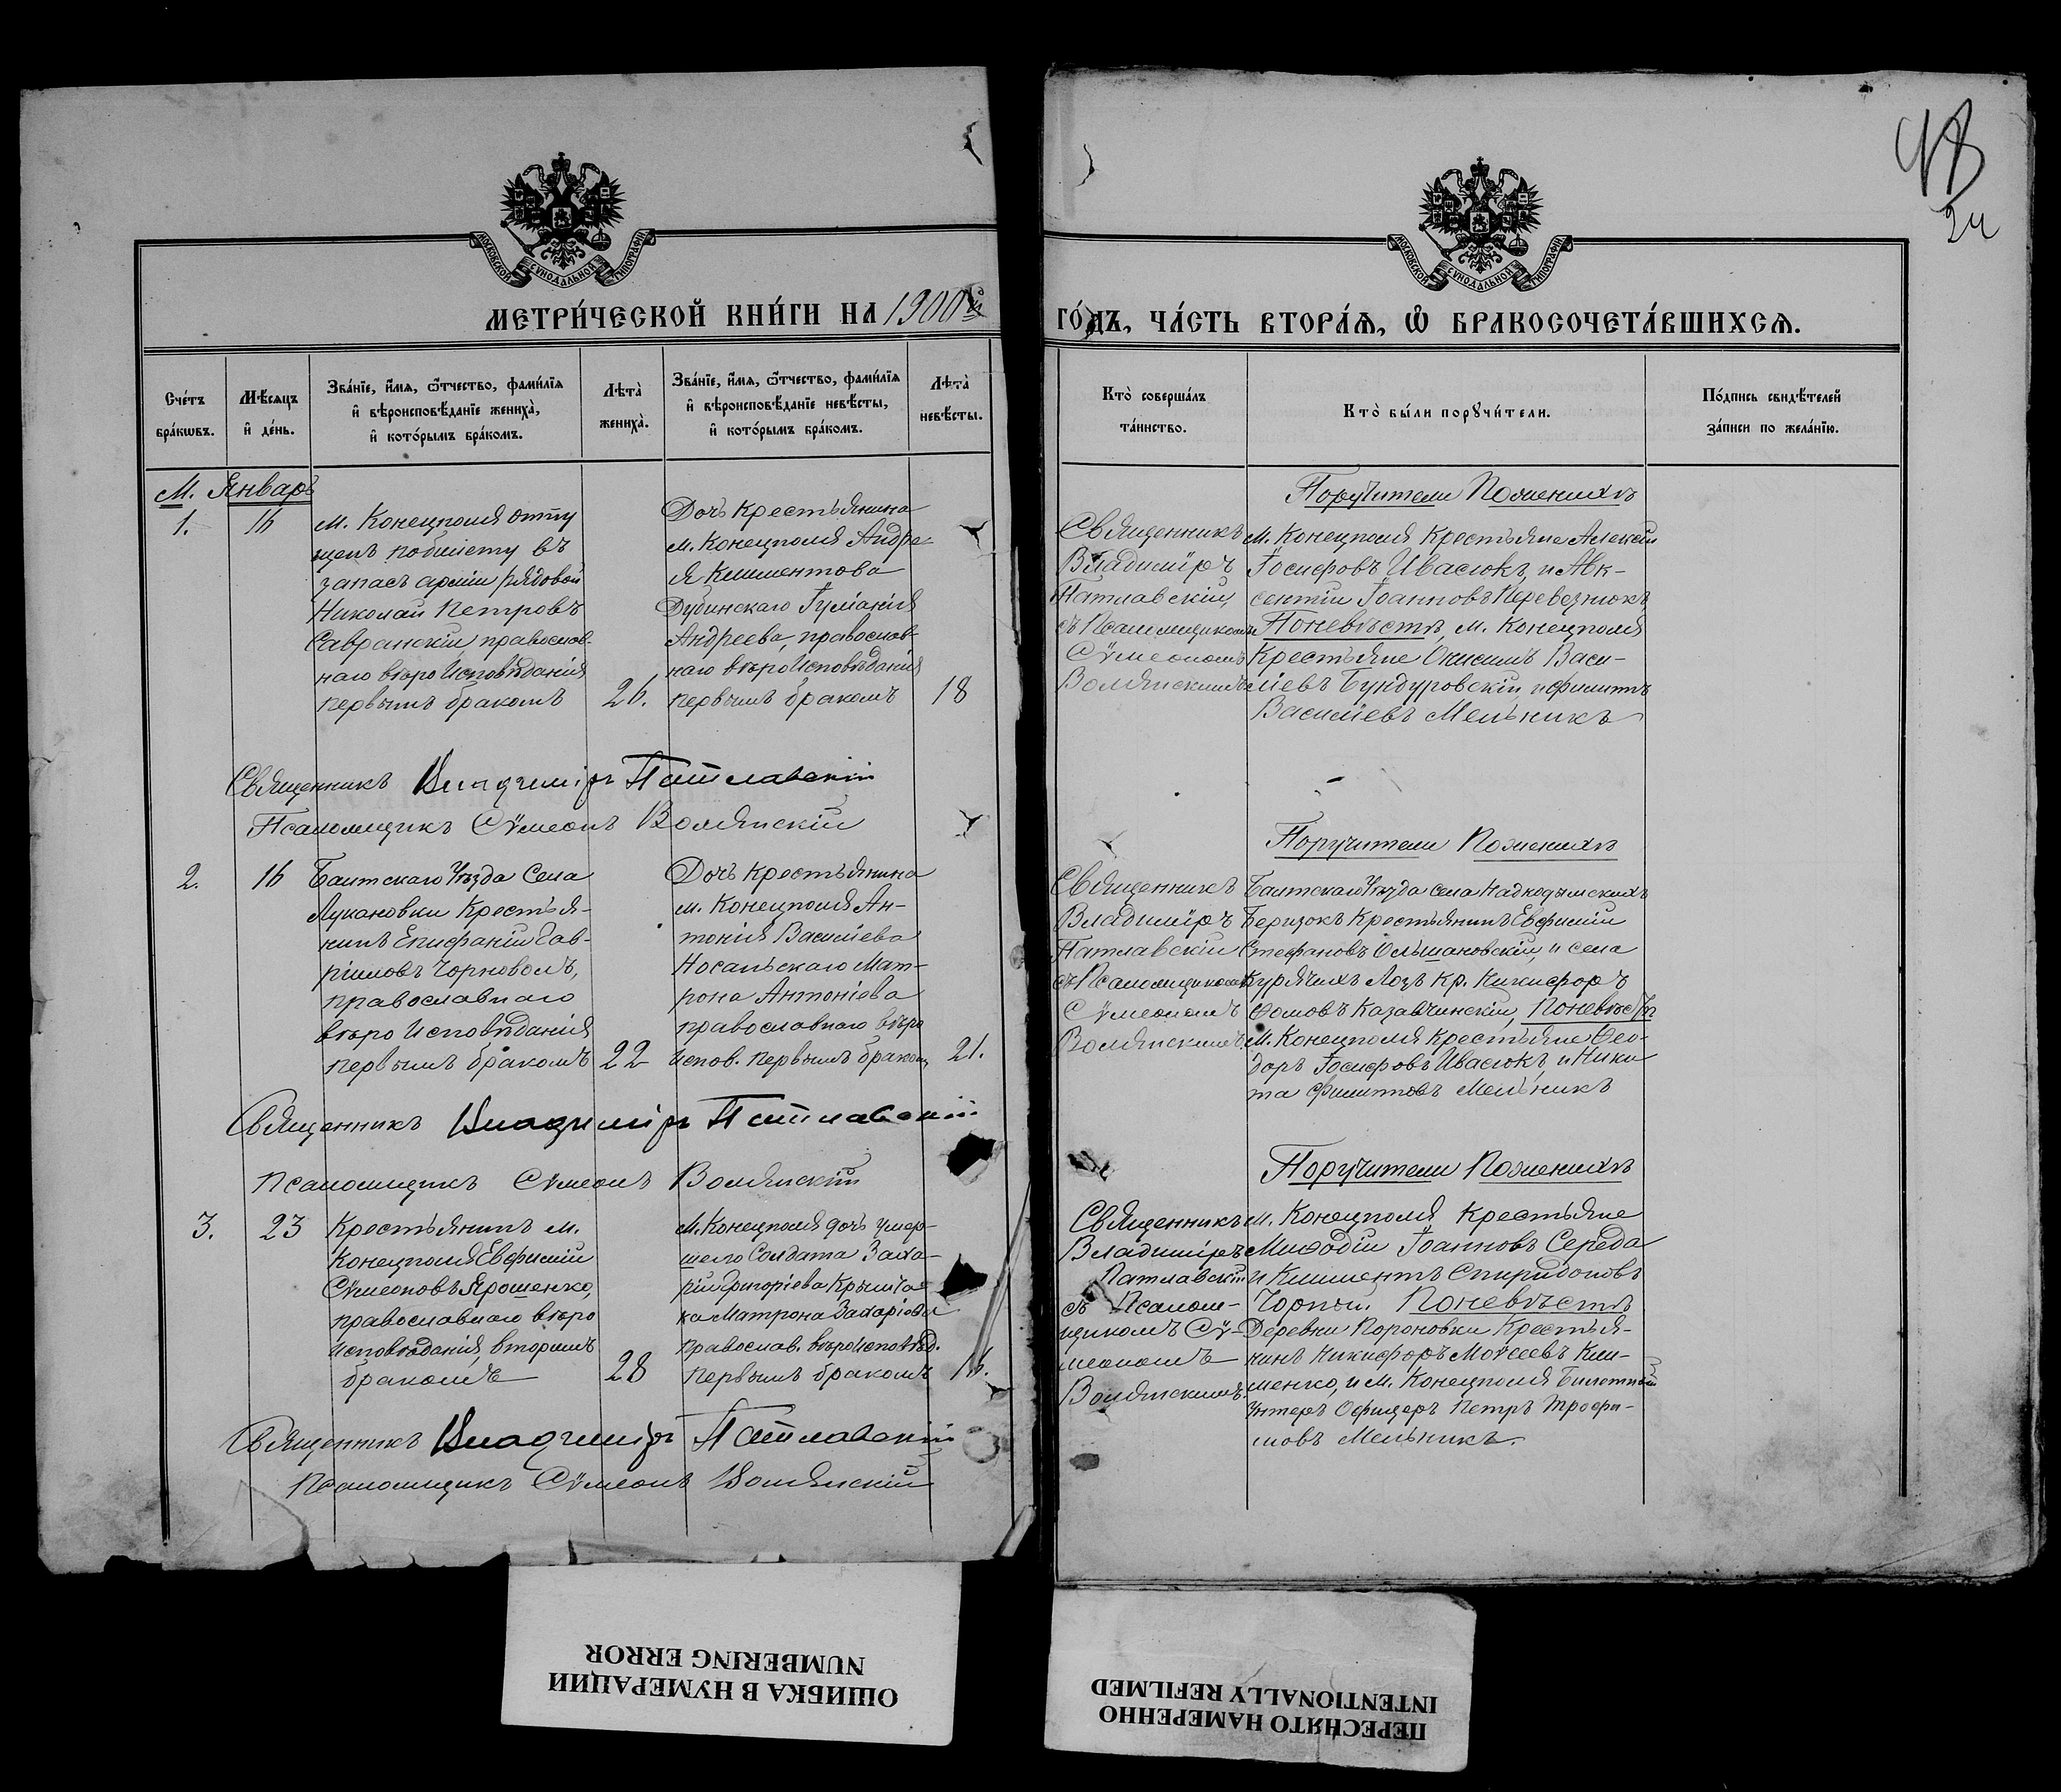 48
24
МОСКОВСКОЙ СѴНОДАЛЬНОЙ ТИПОГРАФІИ
МОСКОВСКОЙ СѴНОДАЛЬНОЙ ТИПОГРАФІИ
МЕТРИ́ЧЕСКОЙ КНИ́ГИ НА 1900й
ГО́ДЪ, ЧА́СТЬ ВТОРА́Ѧ, Ѽ БРАКОСОЧЕТА́ВШИХСѦ.
Сче́тъ бра́кѡвъ.
Мѣ́сѧцъ и҆ де́нь.
Зва́нїе, и҆́мѧ, ѻ҆́тчество, фами́лїѧ и҆ вѣроисповѣ́данїе жениха̀, и҆ кото́рымъ бра́комъ.
Лѣ́та жениха̀.
Зва́нїе, и҆́мѧ, ѻ҆́тчество, фами́лїѧ и҆ вѣроисповѣ́данїе невѣ́сты, и҆ кото́рымъ бра́комъ.
Лѣ́та невѣ́сты.
Кто̀ соверша́лъ та́инство.
Кто̀ бы́ли порꙋчи́тели.
По́дпись свидѣ́телей за́писи по жела́нїю.
М. Январь
1.
16
м. Конецполя отпу
щенъ побилету въ
запасъ арміи рядовой
Николай Петровъ
Савранскій, православ-
наго вѣроИсповѣданія
первымъ бракомъ
26.
Дочь Крестьянина
м. Конецполя Андре-
я Климентова
Дубинскаго Іуліанія
Андреева, православ-
наго вѣроИсповѣданія
первымъ бракомъ
18
Священникъ
Владиміръ
Патлавскій,
съ Псаломщикомъ
Сѵмеономъ
Волянскимъ
Поручители Поженихѣ
м. Конецполя Крестьяне Алексій
Іосифовъ Ивасюкъ, и Авк-
сентій Іоанновъ Перевознюкъ
Поневѣстѣ, м. Конецполя
Крестьяне Онисимъ Васи-
ліевъ Бундуровскій, и Филиппъ
Василіевъ Мельникъ
Священникъ Владиміръ Патлавскій
Псаломщикъ Сѵмеонъ Волянскій
2.
16
Балтскаго Уѣзда Села
Лукановки Крестья-
нинъ Епифаній Гав-
ріиловъ Чорноволъ,
православнаго
вѣроИсповѣданія
первымъ бракомъ
22
Дочь Крестьянина
м. Конецполя Ан-
тонія Василіева
Носальскаго Мат-
рона Антоніева
православнаго вѣро
Испов. первымъ бракомъ
21.
Священникъ
Владиміръ
Патлавскій
съ Псаломщикомъ
Сѵмеономъ
Волянскимъ
Поручители Поженихѣ
Балтскаго Уѣзда села Надкодымскихъ
Беризокъ Крестьянинъ Евфимій
Стефановъ Ольшановскій, и села
Курячихъ Лозъ Кр. Никифоръ
Ѳомовъ Казавчинскій, Поневѣстѣ
м. Конецполя Крестьяне Ѳео-
доръ Іосифовъ Ивасюкъ, и Ники
та Филипповъ Мельникъ
Священникъ Владиміръ Патлавскій
Псаломщикъ Сѵмеонъ Волянскій
3.
23
Крестьянинъ м.
Конецполя Евфимій
Сѵмеоновъ Ярошенко,
православнаго вѣро
Исповѣданія, вторымъ
бракомъ
28
м. Конецполя дочь умер-
шего Солдата Заха-
рія Григоріева
Матрона Захаріева
православ. вѣроИсповѣд.
первымъ бракомъ
16.
Священникъ
Владиміръ
Патлавскій
съ Псалом-
щикомъ Сѵ-
меономъ
Волянскимъ.
Поручители Поженихѣ
м. Конецполя Крестьяне
Миѳодій Іоанновъ Середа
и Климентъ Спиридоновъ
Чорный. Поневѣстѣ
Деревни Пороновки Крестья-
нинъ Никифоръ Моѵсеевъ Кли-
менко, и м. Конецполя Билетный
Унтеръ Офицеръ Петръ Трофи-
мовъ Мельникъ.
Священникъ Владиміръ Патлавскій
Псаломщикъ Сѵмеонъ Волянскій
ОШИБКА В НУМЕРАЦИИ
NUMBERING ERROR
ПЕРЕСНЯТО НАМЕРЕННО
INTENTIONALLY REFILMED